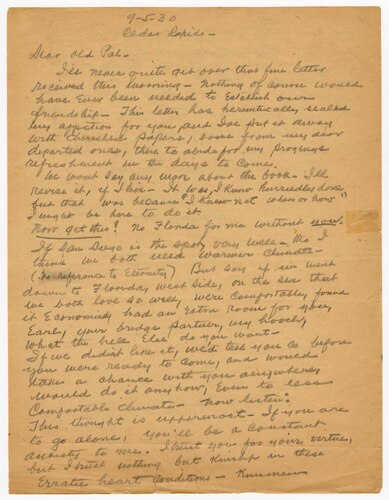 9-5-30
Cedar Rapids -
Dear Old Pal -
I'll never quite get over that fine letter
received this morning - Nothing of course would
have Ever been needed to Establish our
friendship - This letter has hermetically sealed
my affection for you and I've put it away
with Cherished papers, some from my dear
departed ones, there to abide for my
refreshment in the days to Come.
We wont say any more about the book - I'll
revise it, if I live - It was, I know hurriedly done
but that was because "I knew not when or how"
I might be here to do it
Now get this! No Florida for me without you.
If San Diego is the spot, very well - tho I
think we both need warmer Climate -
(No reference to Eternity) But say if we went
down to Florida, West Side, on the sea that
we both love so well, were Comfortable, found
it Economical, had an Extra room for you,
Early, your bridge partner, my hooch,
What the hell Else do you want -
If we didn't like it, we'd tell you so before
you were ready to Come, and would
take a chance with you anywhere,
Would do it any how, Even to less
Comfortable Climate - Now listen:
This thought is uppermost - If you are
to go alone, you'll be a Constant
anxiety to me. I trust you for your virtue,
but I trust nothing but Kinship in these
Erratic heart Conditions -